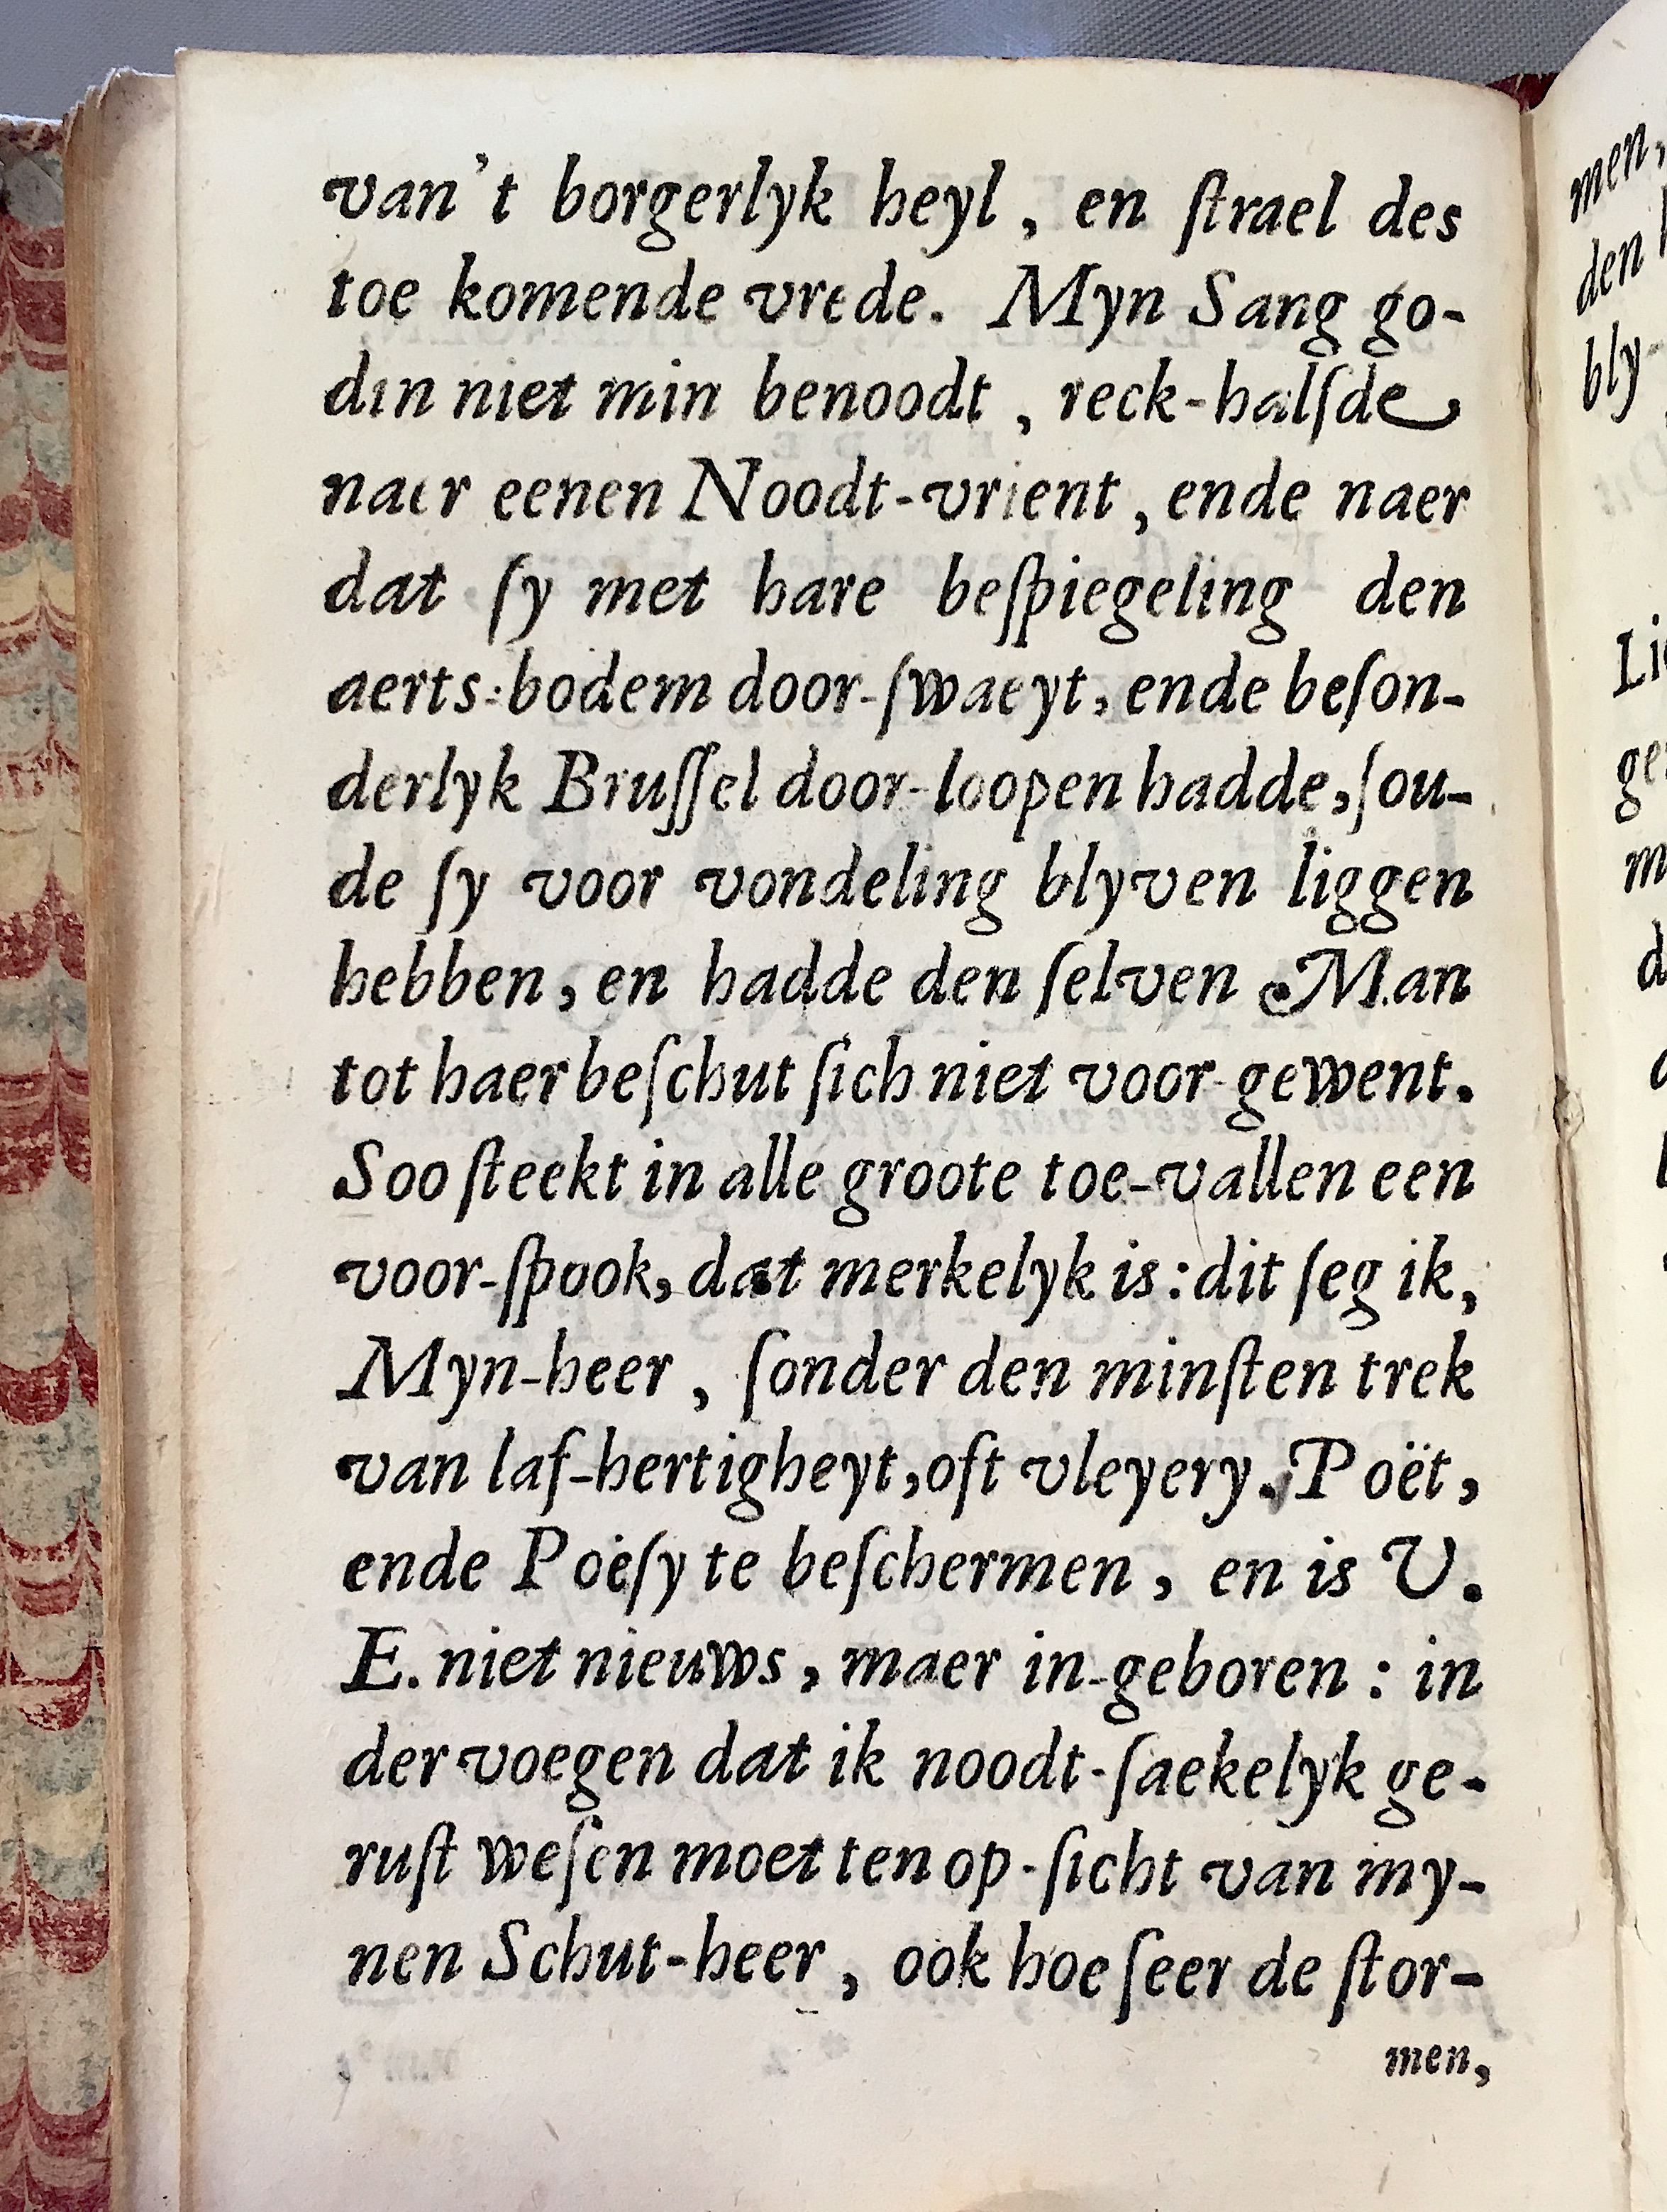 van't borgerlyk heyl, en ſtrael des
toe komende vrede. Myn Sang go-
din niet min benoodt, reck-halſde
naer eenen Noodt-vrient, ende naer
dat ſy met hare beſpiegeling den
aerts-bodem door-ſwaeyt, ende beſon-
derlyk Bruſſel door-loopen hadde, ſou-
de ſy voor vondeling blyven liggen
hebben, en hadde den ſelven Man
tot haer beſchut ſich niet voor-gewent.
Soo ſteekt in alle groote toe-vallen een
voor-ſpook, dat merkelyk is: dit ſeg ik,
Myn-heer, ſonder den minſten trek
van laf-hertigheyt, oft vleyery. Poët,
ende Poësy te beſchermen, en is V.
E. niet nieuws, maer in-geboren: in
der voegen dat ik noodt-ſaekelyk ge-
ruſt weſen moet ten op-ſicht van my-
nen Schut-heer, ook hoe ſeer de ſtor-
men,
men,
den
bly-